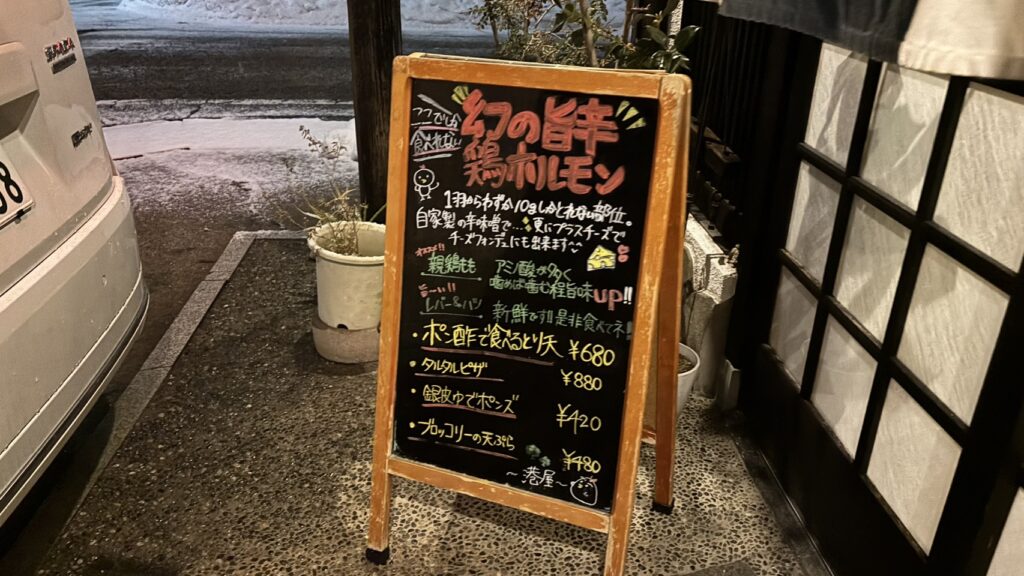 ココでしか
食べれない
幻の旨辛
鶏ホルモン
1羽からわずか10gしかとれない部位。
自家製の辛味噌で…更にプラスチーズで
チーズフォンデュにも出来ます
オススメ!!
親鶏もも
アミノ酸が多く
噛めば噛む程旨味up!!
旨ーい!!
レバー&ハツ
新鮮です!!是非食べてネ!!
・ポン酢で食べるとり天 ¥680
・タルタルピザ ¥880
・銀皮ゆでポンズ ¥420
・ブロッコリーの天ぷら ¥480
～港屋～
8